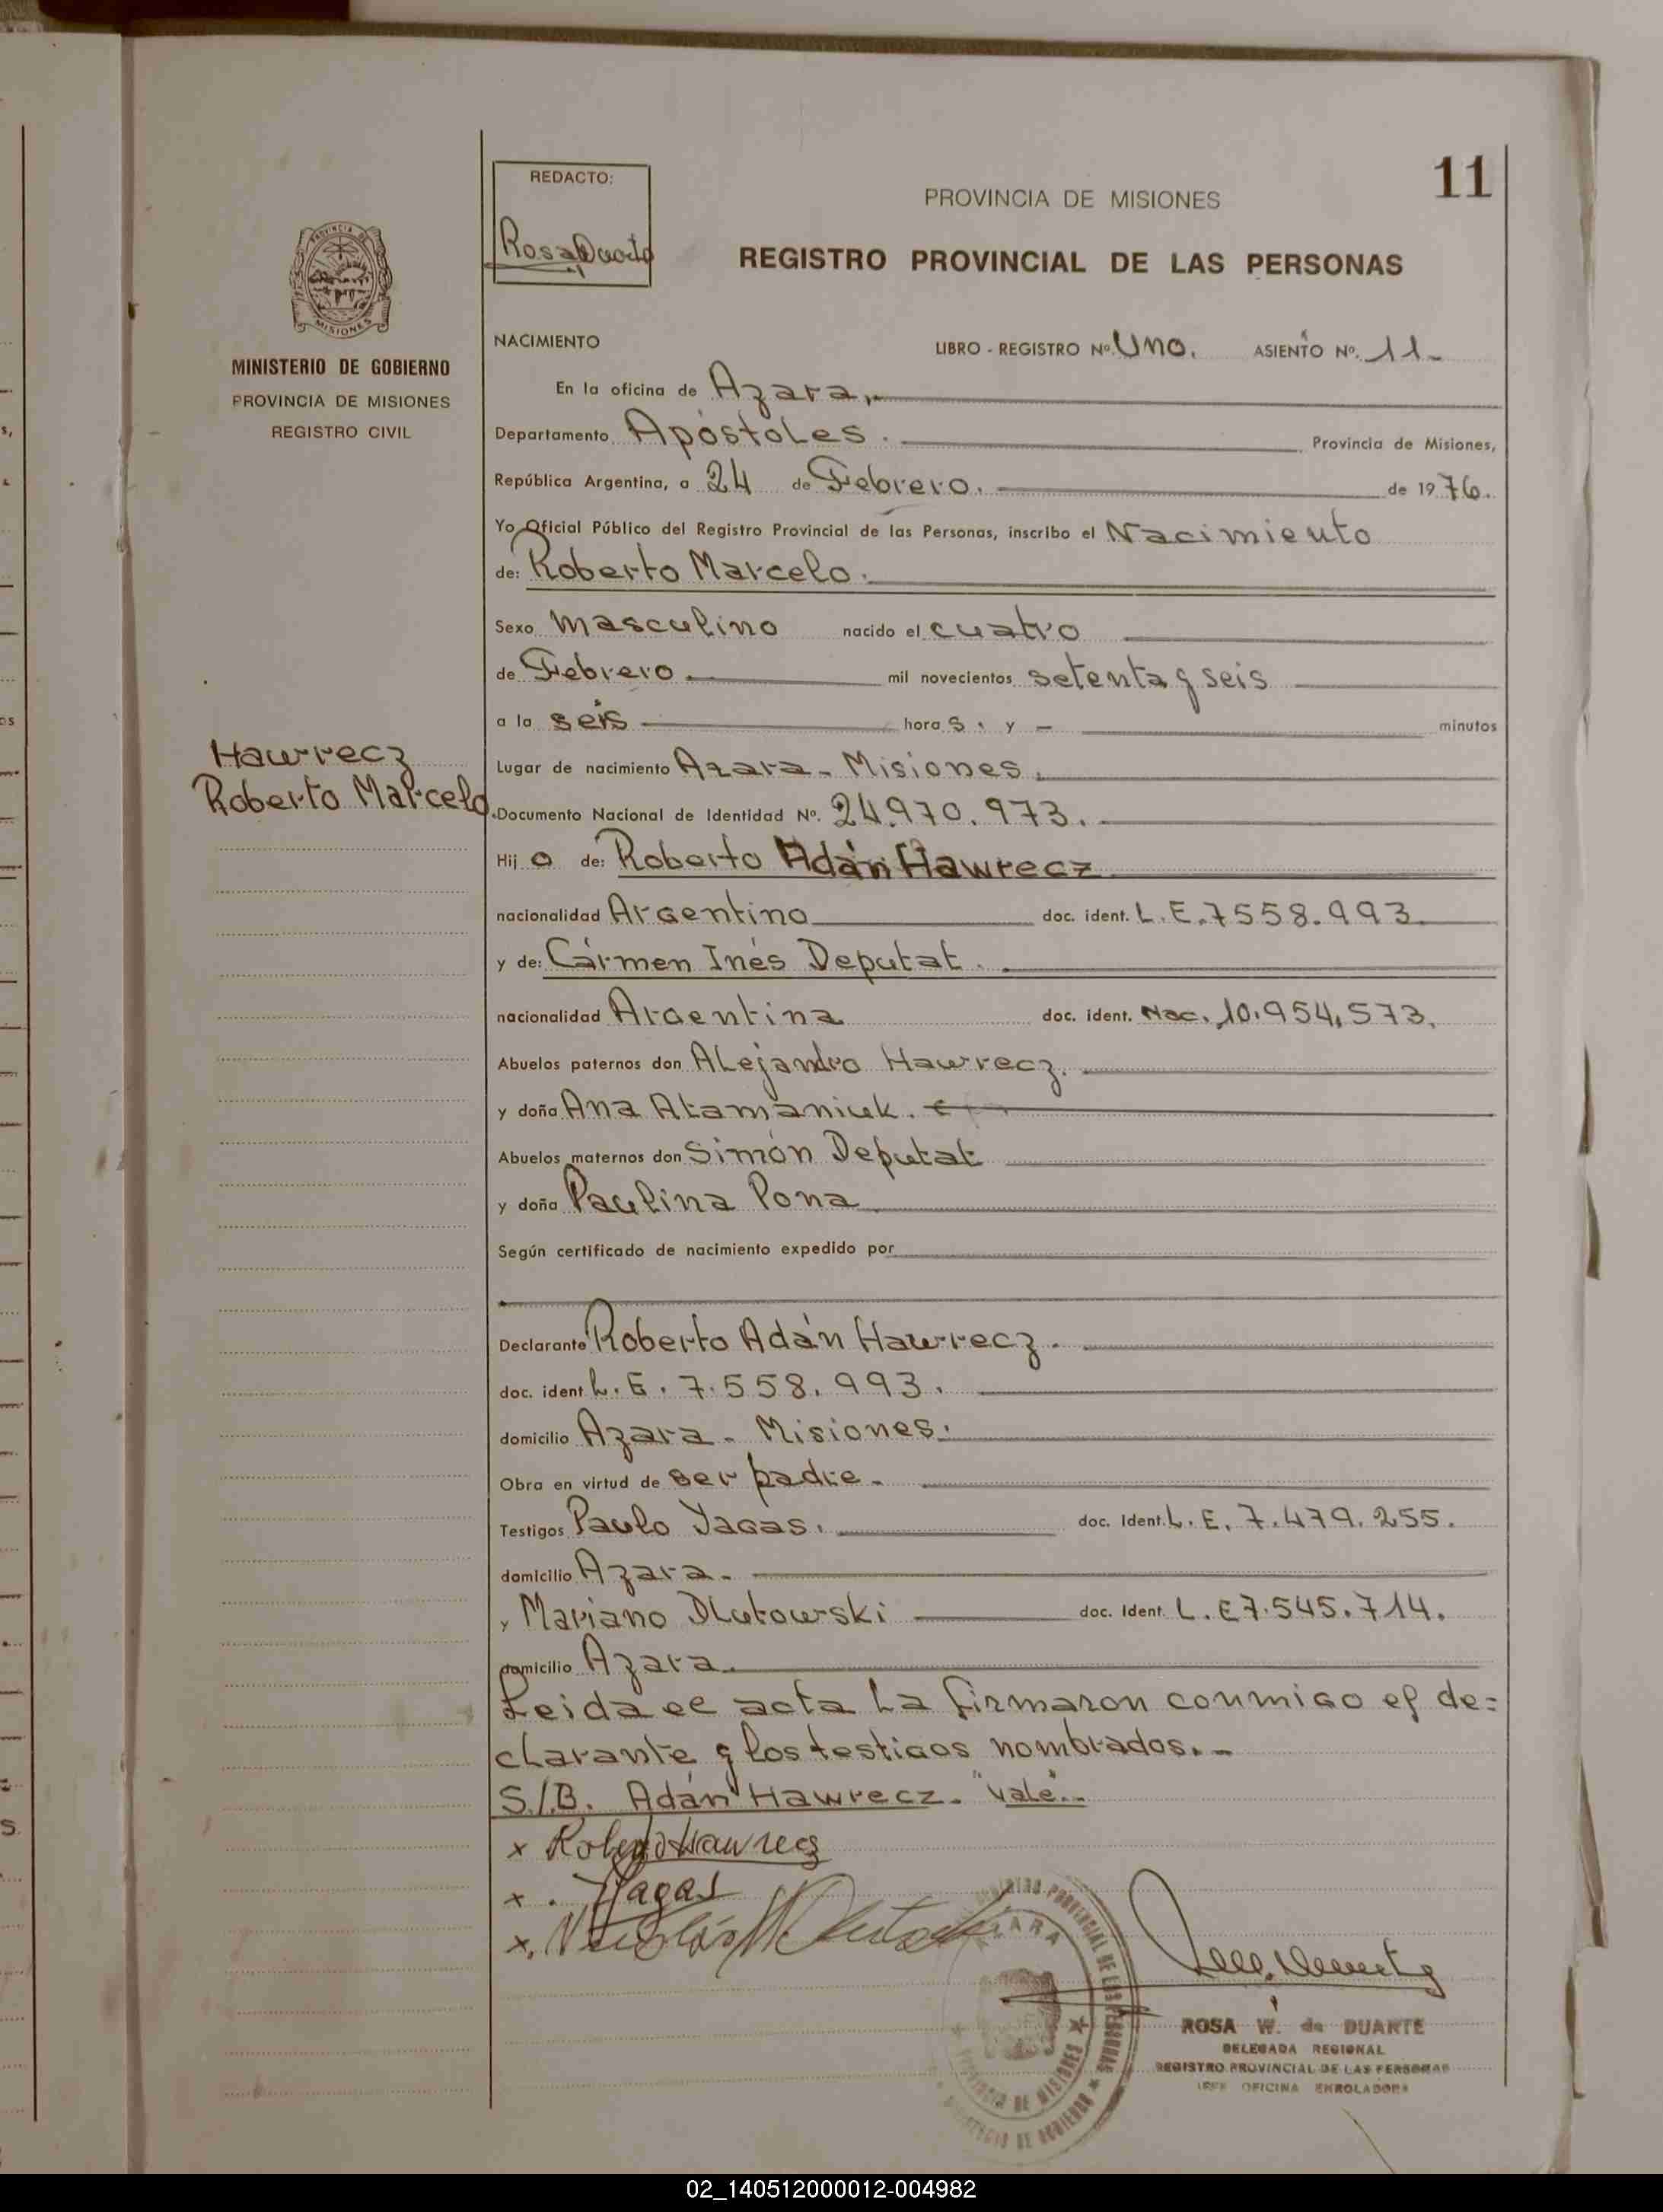 11
REDACTO:
Rosa Duarte
PROVINCIA DE MISIONES
REGISTRO PROVINCIAL DE LAS PERSONAS
PROVINCIA DE
MISIONES
MINISTERIO DE GOBIERNO
PROVINCIA DE MISIONES
REGISTRO CIVIL
NACIMIENTO LIBRO - REGISTRO Nº. Uno. ASIENTO Nº. 11-
En la oficina de Azara,
Departamento Apóstoles. Provincia de Misiones,
República Argentina, a 24 de Febrero. de 1976.
Yo Oficial Público del Registro Provincial de las Personas, inscribo el Nacimiento
de: Roberto Marcelo.
Sexo masculino nacido el cuatro
de Febrero. mil novecientos setenta y seis
a la seis hora s. y - minutos
Hawrecz
Roberto Marcelo
Lugar de nacimiento Azara - Misiones.
Documento Nacional de Identidad Nº. 24.970.973.
Hij o de: Roberto Adán Hawrecz
nacionalidad Argentino doc. ident. L.E. 7558.993.
y de: Cármen Inés Deputat.
nacionalidad Argentina doc. ident. Nac. 10.954,573.
Abuelos paternos don Alejandro Hawrecz.
y doña Ana Atamaniuk.
Abuelos maternos don Simón Deputat
y doña Paulina Pona
Según certificado de nacimiento expedido por
Declarante Roberto Adán Hawrecz.
doc. ident. L.E. 7.558.993.
domicilio Azara - Misiones.
Obra en virtud de ser padre.
Testigos Paulo Yagas. doc. Ident. L.E. 7.479.255.
domicilio Azara.
y Mariano Dlutowski doc. Ident. L.E 7.545.714.
domicilio Azara.
Leida el acta la firmaron conmigo el de=
clarante y los testigos nombrados.-
S/B. Adán Hawrecz. "Vale".-
x Roberto Hawrecz
x . Yagas
x.
REGISTRO PROVINCIAL DE LAS PERSONAS
AZARA
PROVINCIA DE MISIONES
MINISTERIO DE GOBIERNO
ROSA W. de DUARTE
DELEGADA REGIONAL
REGISTRO PROVINCIAL DE LAS PERSONAS
JEFE OFICINA ENROLADORA
02_140512000012-004982